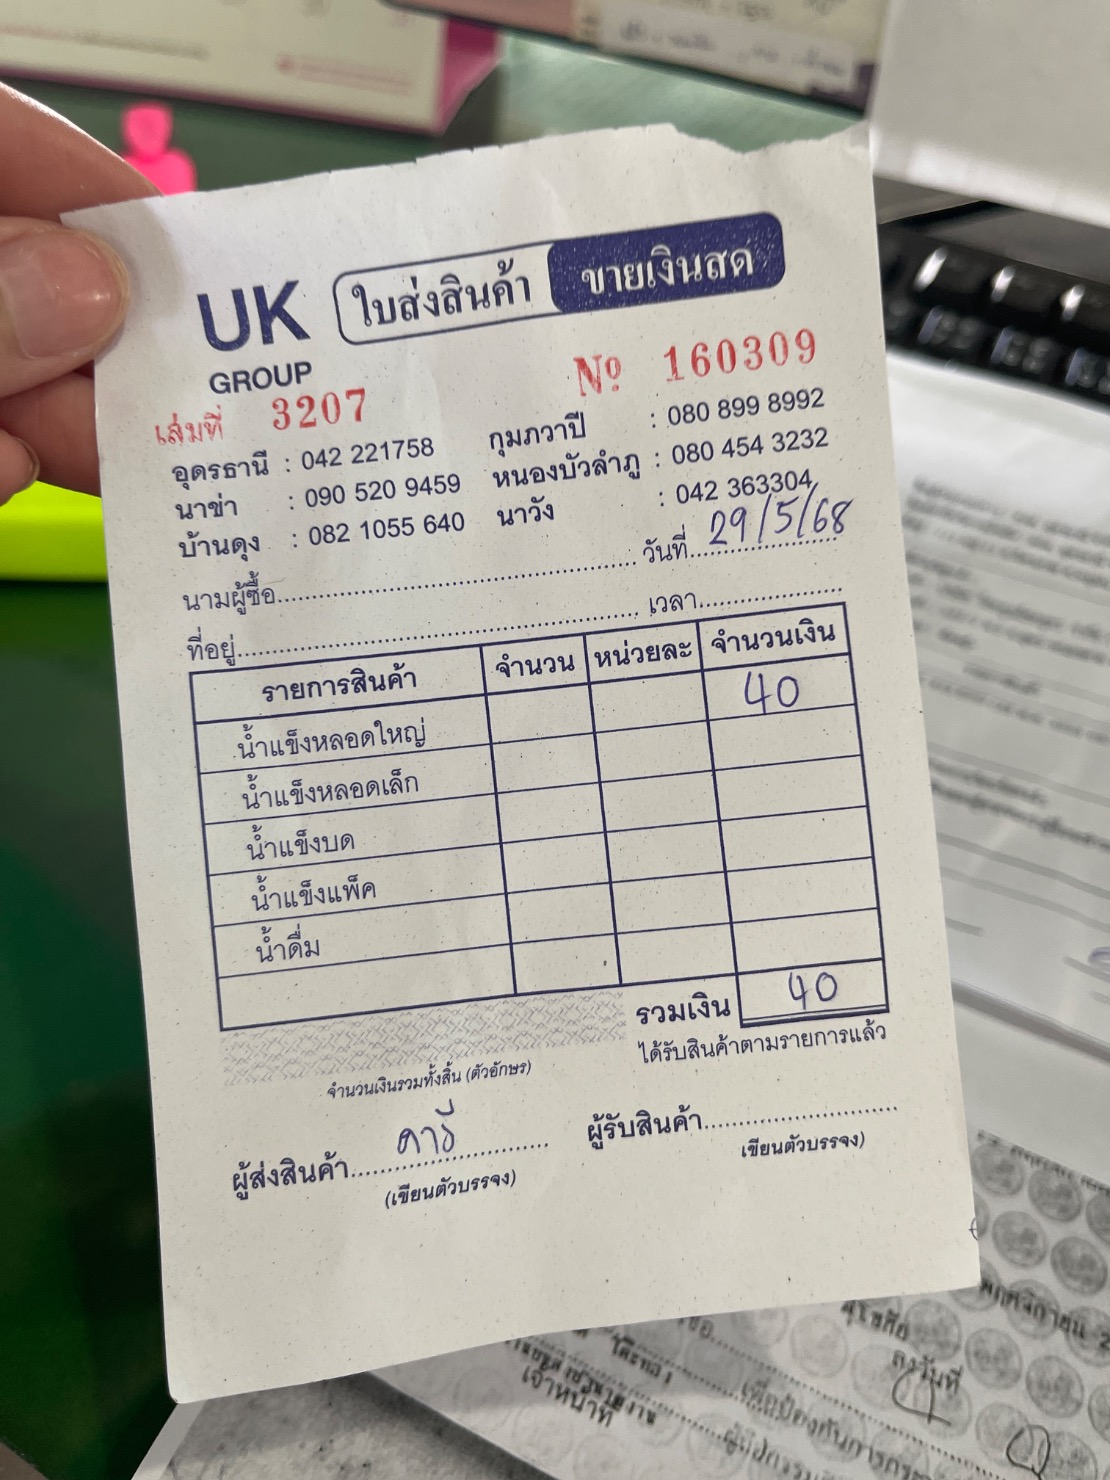 UK
GROUP
ใบส่งสินค้า ขายเงินสด
เล่มที่ 3207 Nº 160309
อุดรธานี : 042 221758 กุมภวาปี : 080 899 8992
นาข่า : 090 520 9459 หนองบัวลำภู : 080 454 3232
บ้านดุง : 082 1055 640 นาวัง : 042 363304
นามผู้ซื้อ วันที่ 29/5/68
ที่อยู่ เวลา
รายการสินค้า จำนวน หน่วยละ จำนวนเงิน
น้ำแข็งหลอดใหญ่ 40
น้ำแข็งหลอดเล็ก
น้ำแข็งบด
น้ำแข็งแพ็ค
น้ำดื่ม
รวมเงิน 40
จำนวนเงินรวมทั้งสิ้น (ตัวอักษร) ได้รับสินค้าตามรายการแล้ว
ผู้ส่งสินค้า ผู้รับสินค้า
(เขียนตัวบรรจง) (เขียนตัวบรรจง)
ลงวันที่
เจ้าหน้าที่